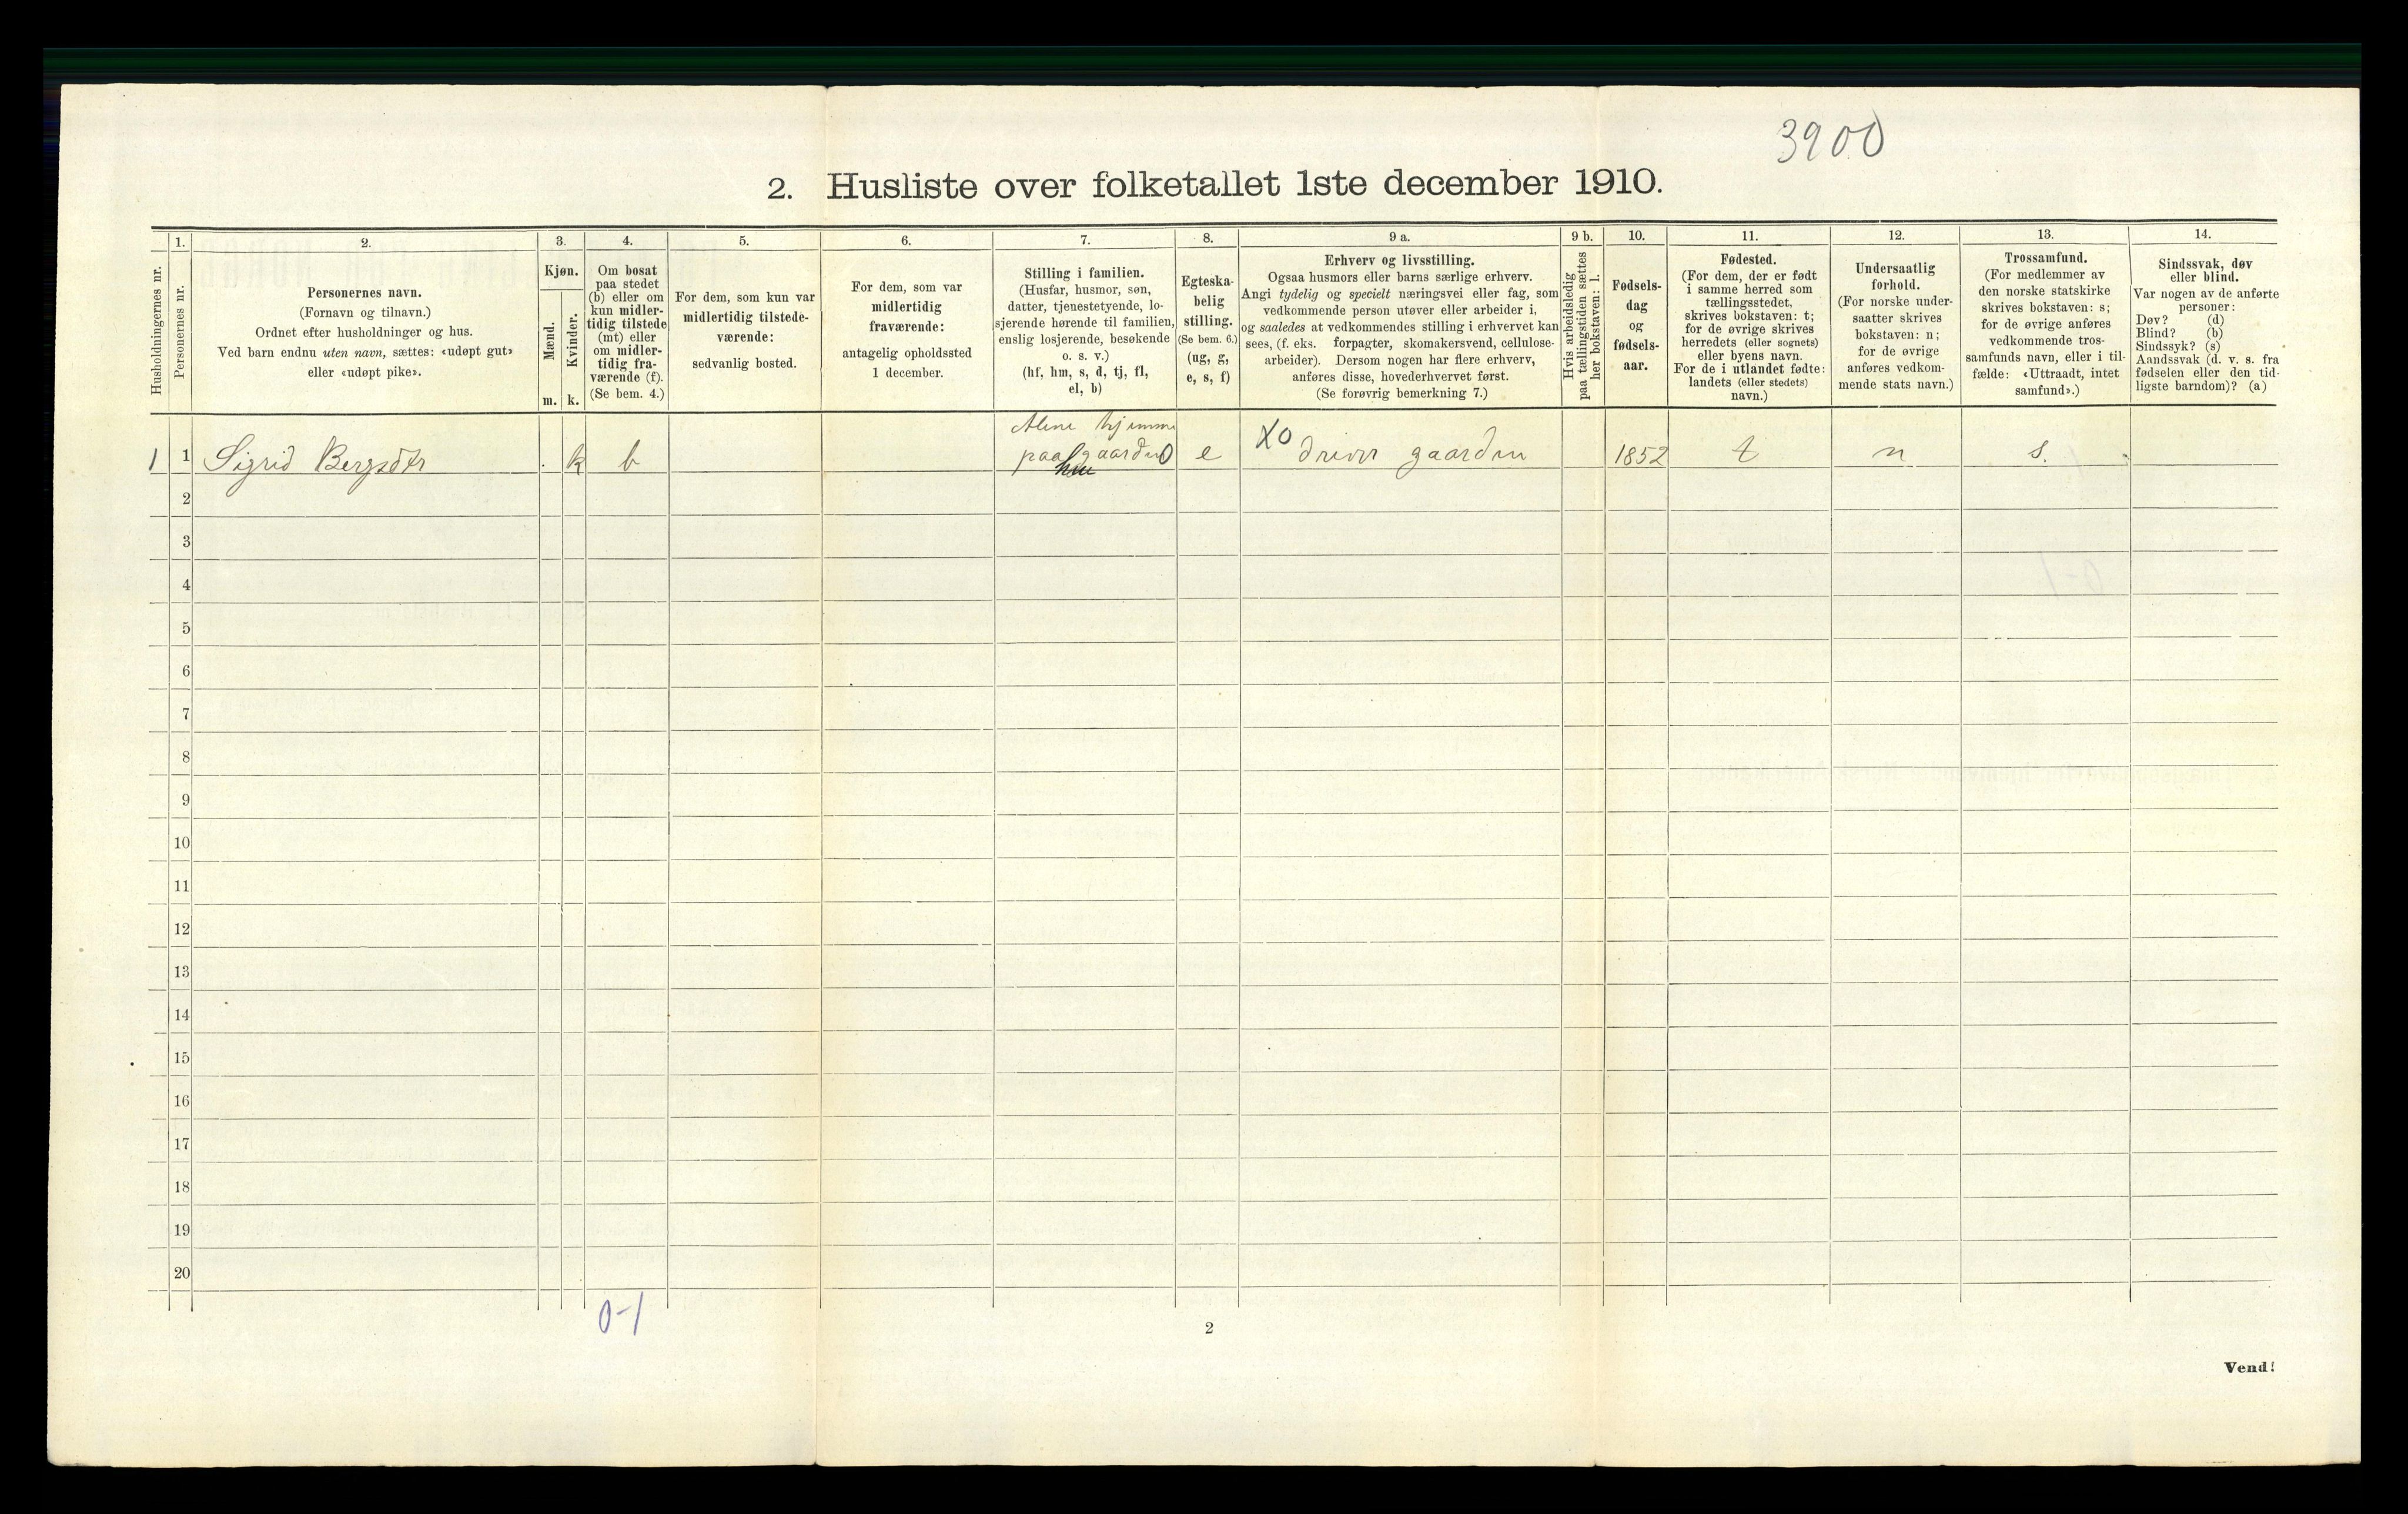 3900
2. Husliste over folketallet 1ste december 1910.
Husholdningernes nr.
1.
Personernes nr.
2.
Personernes navn.
(Fornavn og tilnavn.)
Ordnet efter husholdninger og hus.
Ved barn endnu uten navn, sættes: «udøpt gut»
eller «udøpt pike».
3.
Kjøn.
Mænd.
Kvinder.
m. k.
4.
Om bosat
paa stedet
(b) eller om
kun midler-
tidig tilstede
(mt) eller
om midler-
tidig fra-
værende (f).
(Se bem. 4.)
5.
For dem, som kun var
midlertidig tilstede-
værende:
sedvanlig bosted.
6.
For dem, som var
midlertidig
fraværende:
antagelig opholdssted
1 december.
7.
Stilling i familien.
(Husfar, husmor, søn,
datter, tjenestetyende, lo-
sjerende hørende til familien,
enslig losjerende, besøkende
o. s. v.)
(hf, hm, s, d, tj, fl,
el, b)
8.
Egteska-
belig
stilling.
(Se bem. 6.)
(ug, g,
e, s, f)
9 a.
Erhverv og livsstilling.
Ogsaa husmors eller barns særlige erhverv.
Angi tydelig og specielt næringsvei eller fag, som
vedkommende person utøver eller arbeider i,
og saaledes at vedkommendes stilling i erhvervet kan
sees, (f. eks. forpagter, skomakersvend, cellulose-
arbeider). Dersom nogen har flere erhverv,
anføres disse, hovederhvervet først.
(Se forøvrig bemerkning 7.)
9 b.
Hvis arbeidsledig
paa tællingstiden sættes
her bokstaven: l.
10.
Fødsels-
dag
og
fødsels-
aar.
11.
Fødested.
(For dem, der er født
i samme herred som
tællingsstedet,
skrives bokstaven: t;
for de øvrige skrives
herredets (eller sognets)
eller byens navn.
For de i utlandet fødte:
landets (eller stedets)
navn.)
12.
Undersaatlig
forhold.
(For norske under-
saatter skrives
bokstaven: n;
for de øvrige
anføres vedkom-
mende stats navn.)
13.
Trossamfund.
(For medlemmer av
den norske statskirke
skrives bokstaven: s;
for de øvrige anføres
vedkommende tros-
samfunds navn, eller i til-
fælde: «Uttraadt, intet
samfund».)
14.
Sindssvak, døv
eller blind.
Var nogen av de anførte
personer:
Døv? (d)
Blind? (b)
Sindssyk? (s)
Aandssvak (d. v. s. fra
fødselen eller den tid-
ligste barndom)? (a)
1 1 Sigrid Bergsdtr k b Alene hjemme
paa gaarden e XO driver gaarden 1852 t n s.
2
3
4
5
6
7
8
9
10
11
12
13
14
15
16
17
18
19
20
0-1
2
Vend!